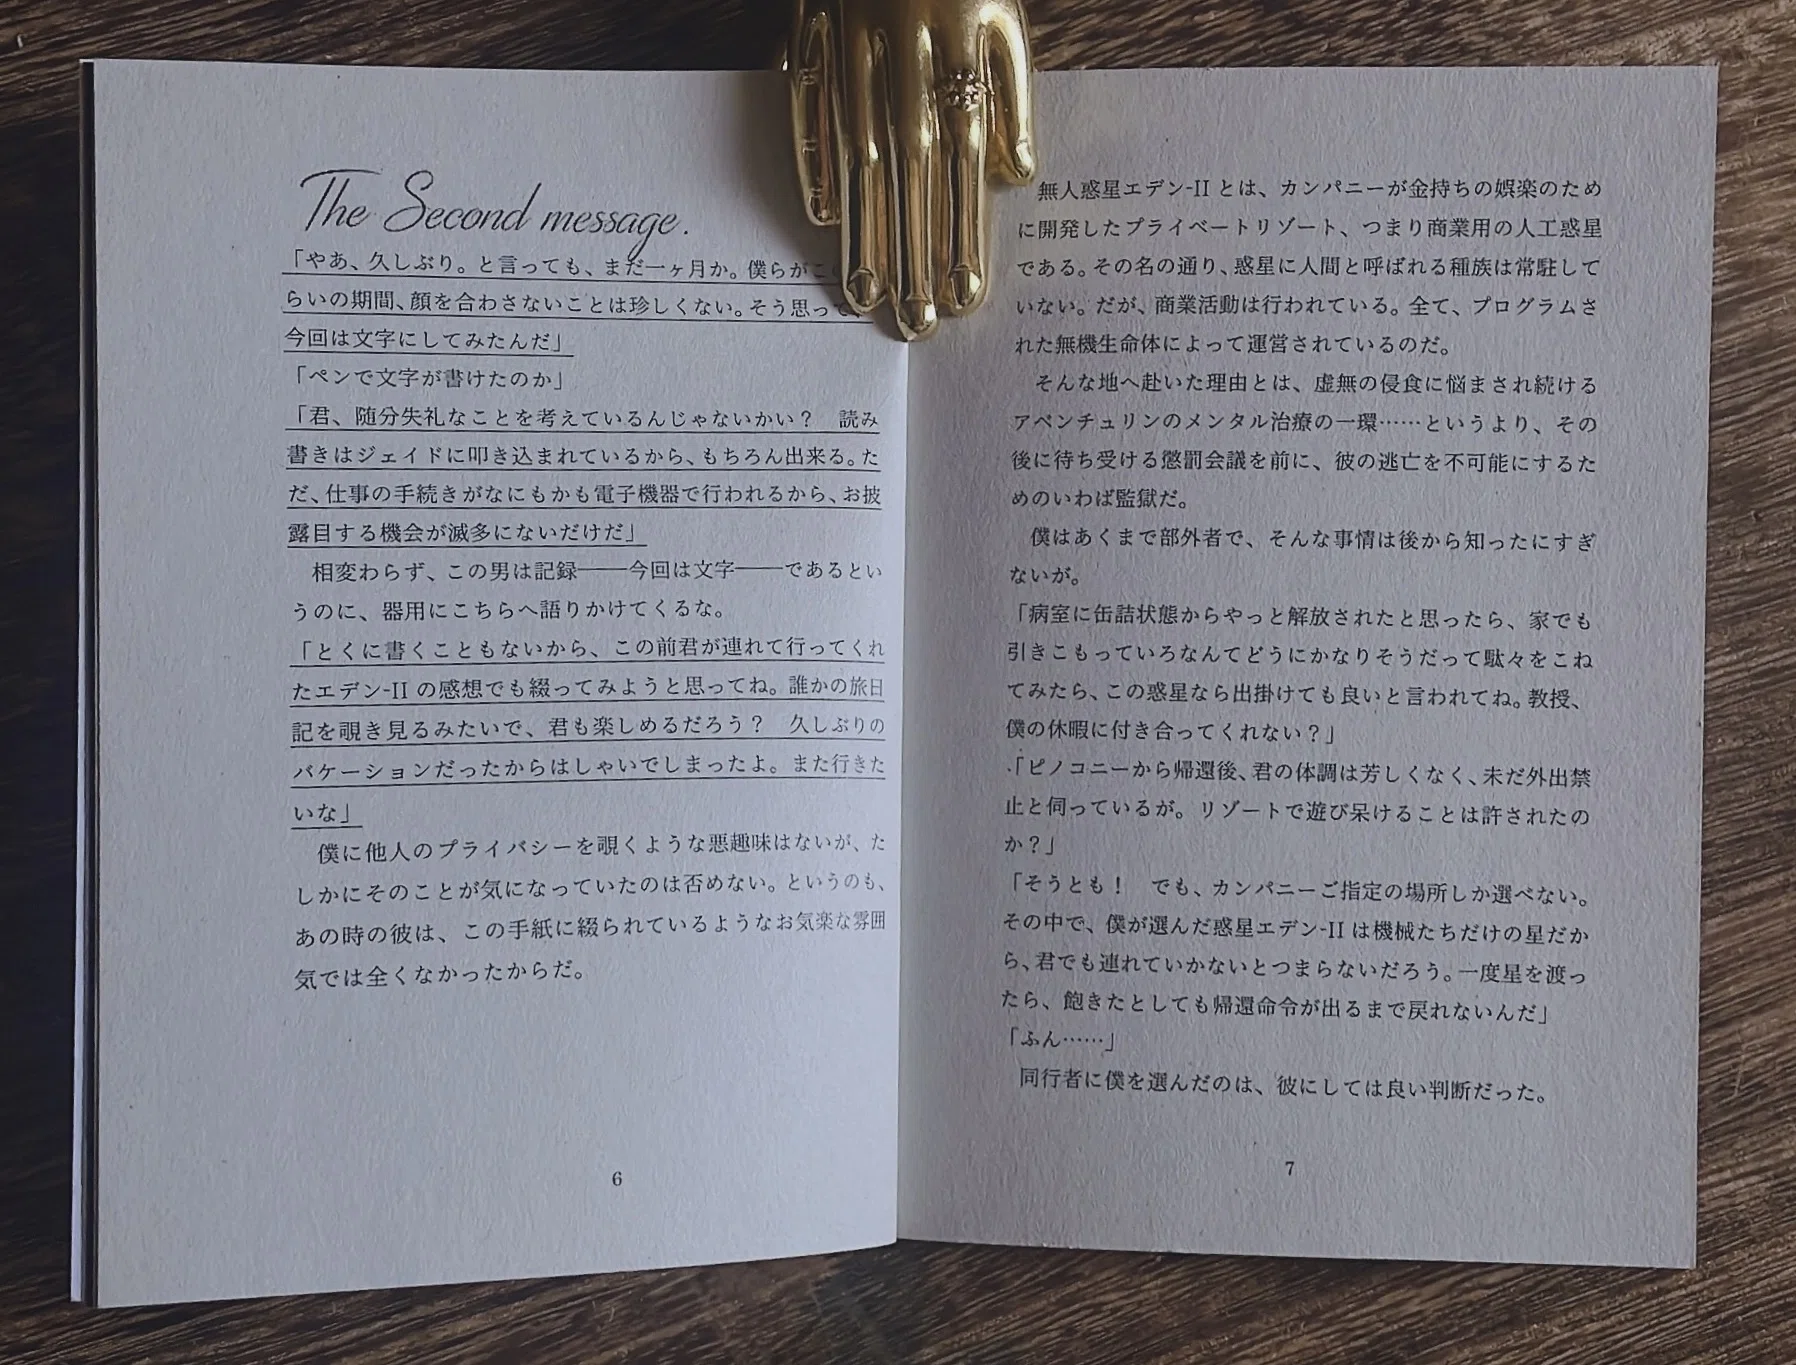 The Second message.
「やあ、久しぶり。と言っても、まだ一ヶ月か。僕らがこ
らいの期間、顔を合わさないことは珍しくない。そう思って、
今回は文字にしてみたんだ」
「ペンで文字が書けたのか」
「君、随分失礼なことを考えているんじゃないかい？　読み
書きはジェイドに叩き込まれているから、もちろん出来る。た
だ、仕事の手続きがなにもかも電子機器で行われるから、お披
露目する機会が滅多にないだけだ」
相変わらず、この男は記録――今回は文字――であるとい
うのに、器用にこちらへ語りかけてくるな。
「とくに書くこともないから、この前君が連れて行ってくれ
たエデン-IIの感想でも綴ってみようと思ってね。誰かの旅日
記を覗き見るみたいで、君も楽しめるだろう？　久しぶりの
バケーションだったからはしゃいでしまったよ。また行きた
いな」
僕に他人のプライバシーを覗くような悪趣味はないが、た
しかにそのことが気になっていたのは否めない。というのも、
あの時の彼は、この手紙に綴られているようなお気楽な雰囲
気では全くなかったからだ。
6
無人惑星エデン-IIとは、カンパニーが金持ちの娯楽のため
に開発したプライベートリゾート、つまり商業用の人工惑星
である。その名の通り、惑星に人間と呼ばれる種族は常駐して
いない。だが、商業活動は行われている。全て、プログラムさ
れた無機生命体によって運営されているのだ。
そんな地へ赴いた理由とは、虚無の侵食に悩まされ続ける
アベンチュリンのメンタル治療の一環……というより、その
後に待ち受ける懲罰会議を前に、彼の逃亡を不可能にするた
めのいわば監獄だ。
僕はあくまで部外者で、そんな事情は後から知ったにすぎ
ないが。
「病室に缶詰状態からやっと解放されたと思ったら、家でも
引きこもっていろなんてどうにかなりそうだって駄々をこね
てみたら、この惑星なら出掛けても良いと言われてね。教授、
僕の休暇に付き合ってくれない？」
「ピノコニーから帰還後、君の体調は芳しくなく、未だ外出禁
止と伺っているが。リゾートで遊び呆けることは許されたの
か？」
「そうとも！　でも、カンパニーご指定の場所しか選べない。
その中で、僕が選んだ惑星エデン-IIは機械たちだけの星だか
ら、君でも連れていかないとつまらないだろう。一度星を渡っ
たら、飽きたとしても帰還命令が出るまで戻れないんだ」
「ふん……」
同行者に僕を選んだのは、彼にしては良い判断だった。
7